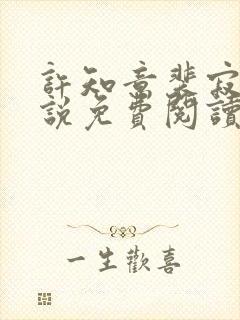 許知意裴寂
說免費閱讀
一生歡喜